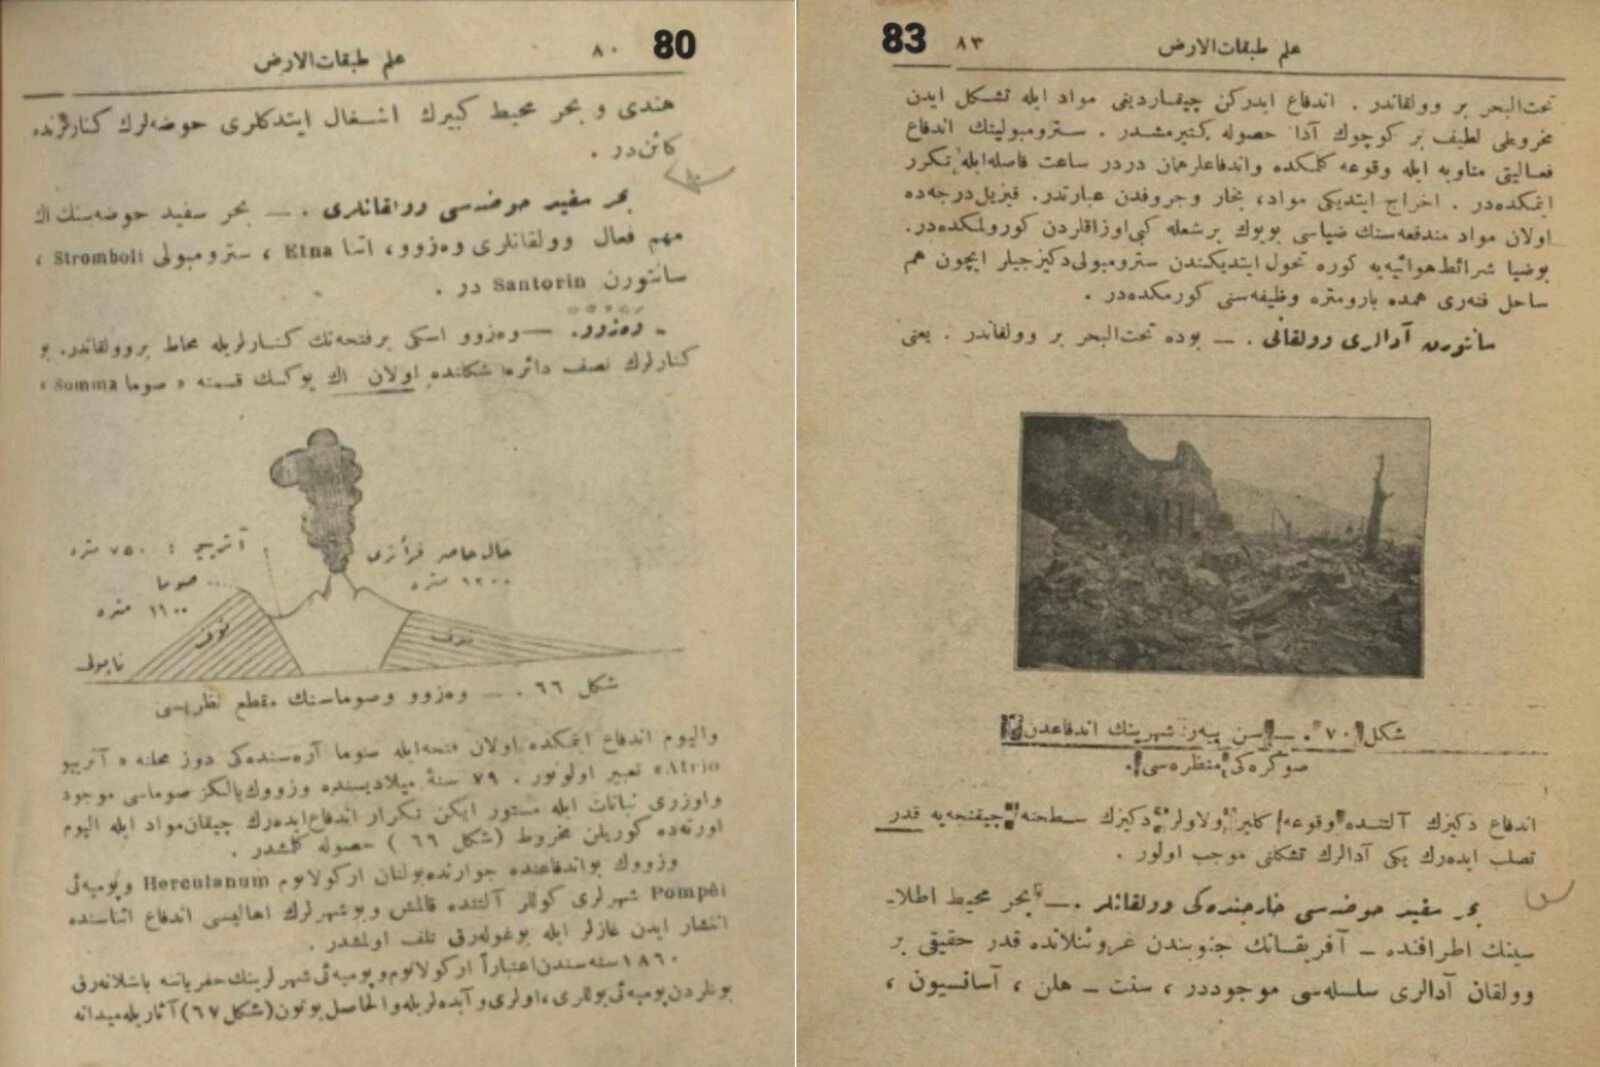 علم طبقات‌الارض ٨٠ 80
هندی و بحر محیط کبیرك اشغال ایتدکلری حوضه‌لرك کنارلرنده
کائن‌در .
بحر سفید حوضه‌سی وولقانلری . — بحر سفید حوضه‌سنك اك
مهم فعال وولقانلری وه‌زوو، اتنا Etna ، سترومبولی Stromboli ،
سانتورن Santorin در .
وه‌زوو. — وه‌زوو اسکی برفتحه‌نك کنارلریله محاط بروولقاندر. بو
کنارلرك نصف دائره شکلنده اولان اك یوکسك قسمنه « صوما Somma »
آتریو : ٧٥٠ متره
حال حاضر فرأزی
١٢٠٠ متره
صوما
١١٠٠ متره
توف
توف
ناپولی
شکل ٦٦ . — وه‌زوو وصوماسنك مقطع نظریسی
والیوم اندفاع ایتمکده اولان فتحه‌ایله صوما آره‌سنده‌کی دوز محلنه « آتریو
Atrio» تعبیر اولونور . ٧٩ سنهٔ میلادیسنده وزووك یالکز صوماسی موجود
واوزری نباتات ایله مستور ایکن تکرار اندفاع ایده‌رك چیقان مواد ایله الیوم
اورته‌ده کوریلن مخروط (شکل ٦٦ ) حصوله کلمشدر .
وزووك بواندفاعنده جوارنده‌بولنان ارکولانوم Herculanum وپومپه‌ئی
Pompéi شهرلری کوللر آلتنده قالمش وبوشهرلرك اهالیسی اندفاع اثناسنده
انتشار ایدن غازلر ایله بوغوله‌رق تلف اولمشدر .
١٨٦٠ سنه‌سندن‌اعتباراً ارکولانوم‌وپومپه‌ئی شهرلرینك حفریاتنه باشلانه‌رق
بونلردن پومپه‌ئی یوللری، اولری وآبده‌لریله والحاصل بوتون (شکل ٦٧) آثاریله میدانه
83 ٨٣ علم طبقات‌الارض
تحت‌البحر بر وولقاندر . اندفاع ایدرکن چیقاردیغی مواد ایله تشکل ایدن
مخروطی لطیف بر کوچوك آدا حصوله کتیرمشدر . سترومبولینك اندفاع
فعالیتی متاوبه ایله وقوعه کلمکده واندفاعلرهمان دردر ساعت فاصله‌ایله تکرر
ایتمکده‌در . اخراج ایتدیکی مواد، بخار وجروفدن عبارتدر. قیزیل‌درجه‌ده
اولان مواد مندفعه‌سنك ضیاسی بویوك برشعله کبی‌اوزاقلردن کورولمکده‌در.
بوضیا شرائط‌هوائیه‌یه کوره تحول ایتدیکندن سترومبولی‌دکیزجیلر ایچون هم
ساحل فنه‌ری همده بارومتره وظیفه‌سنی کورمکده‌در .
سانتورن آدالری وولقانی . — بوده تحت‌البحر بر وولقاندر . یعنی
شکل ٧٠ . — سن پیه‌ر شهرینك اندفاعدن
صوکره‌کی منظره‌سی .
اندفاع دکیزك آلتنده وقوعه کلیر ولاولر دکیزك سطحنه چیقنجه‌یه قدر
تصلب ایده‌رك یکی آدالرك تشکلنی موجب اولور .
بحر سفید حوضه‌سی خارجنده‌کی وولقانلر .— بحر محیط اطلا-
سینك اطرافنده — آفریقانك جنوبندن غروئنلانده قدر حقیقی بر
وولقان آدالری سلسله‌سی موجوددر ، سنت — هلن ، آسانسیون ،